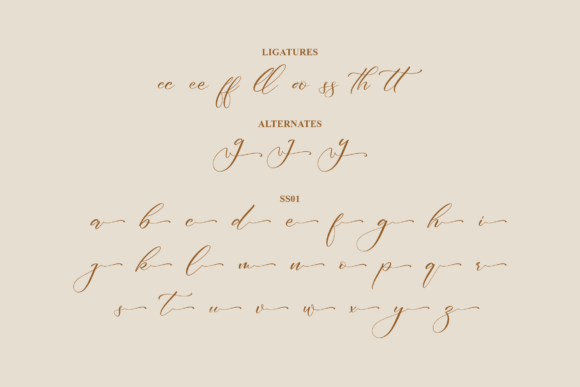 LIGATURES
cc ee ff ll oo ss th tt
ALTERNATES
g j y
SS01
a b c d e f g h i
j k l m n o p q r
s t u v w x y z